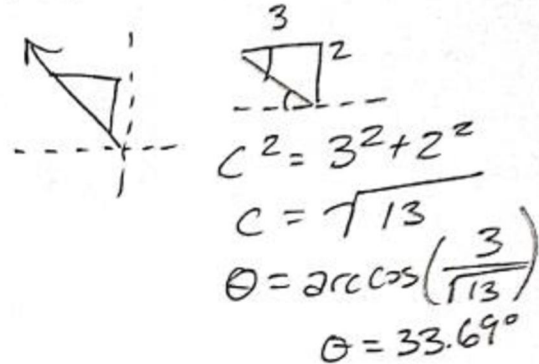 3
2
c² = 3² + 2²
c = √13
θ = arccos(3/√13)
θ = 33.69°